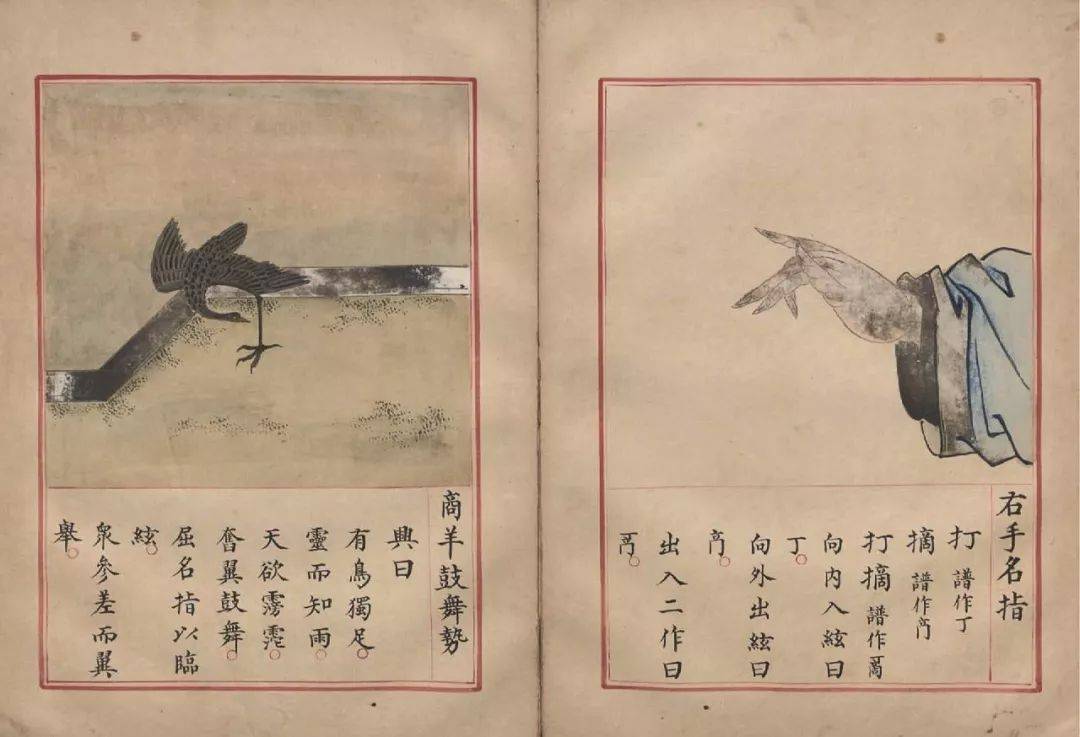 右手名指
打 譜作丁
摘 譜作
打摘 譜作
向內入絃曰
丁。
向外出絃曰
出入二作曰
商羊鼓舞勢
興曰
有鳥獨足。
靈而知雨。
天欲霶霈。
奮翼鼓舞。
屈名指以臨
絃。
衆參差而翼
舉。